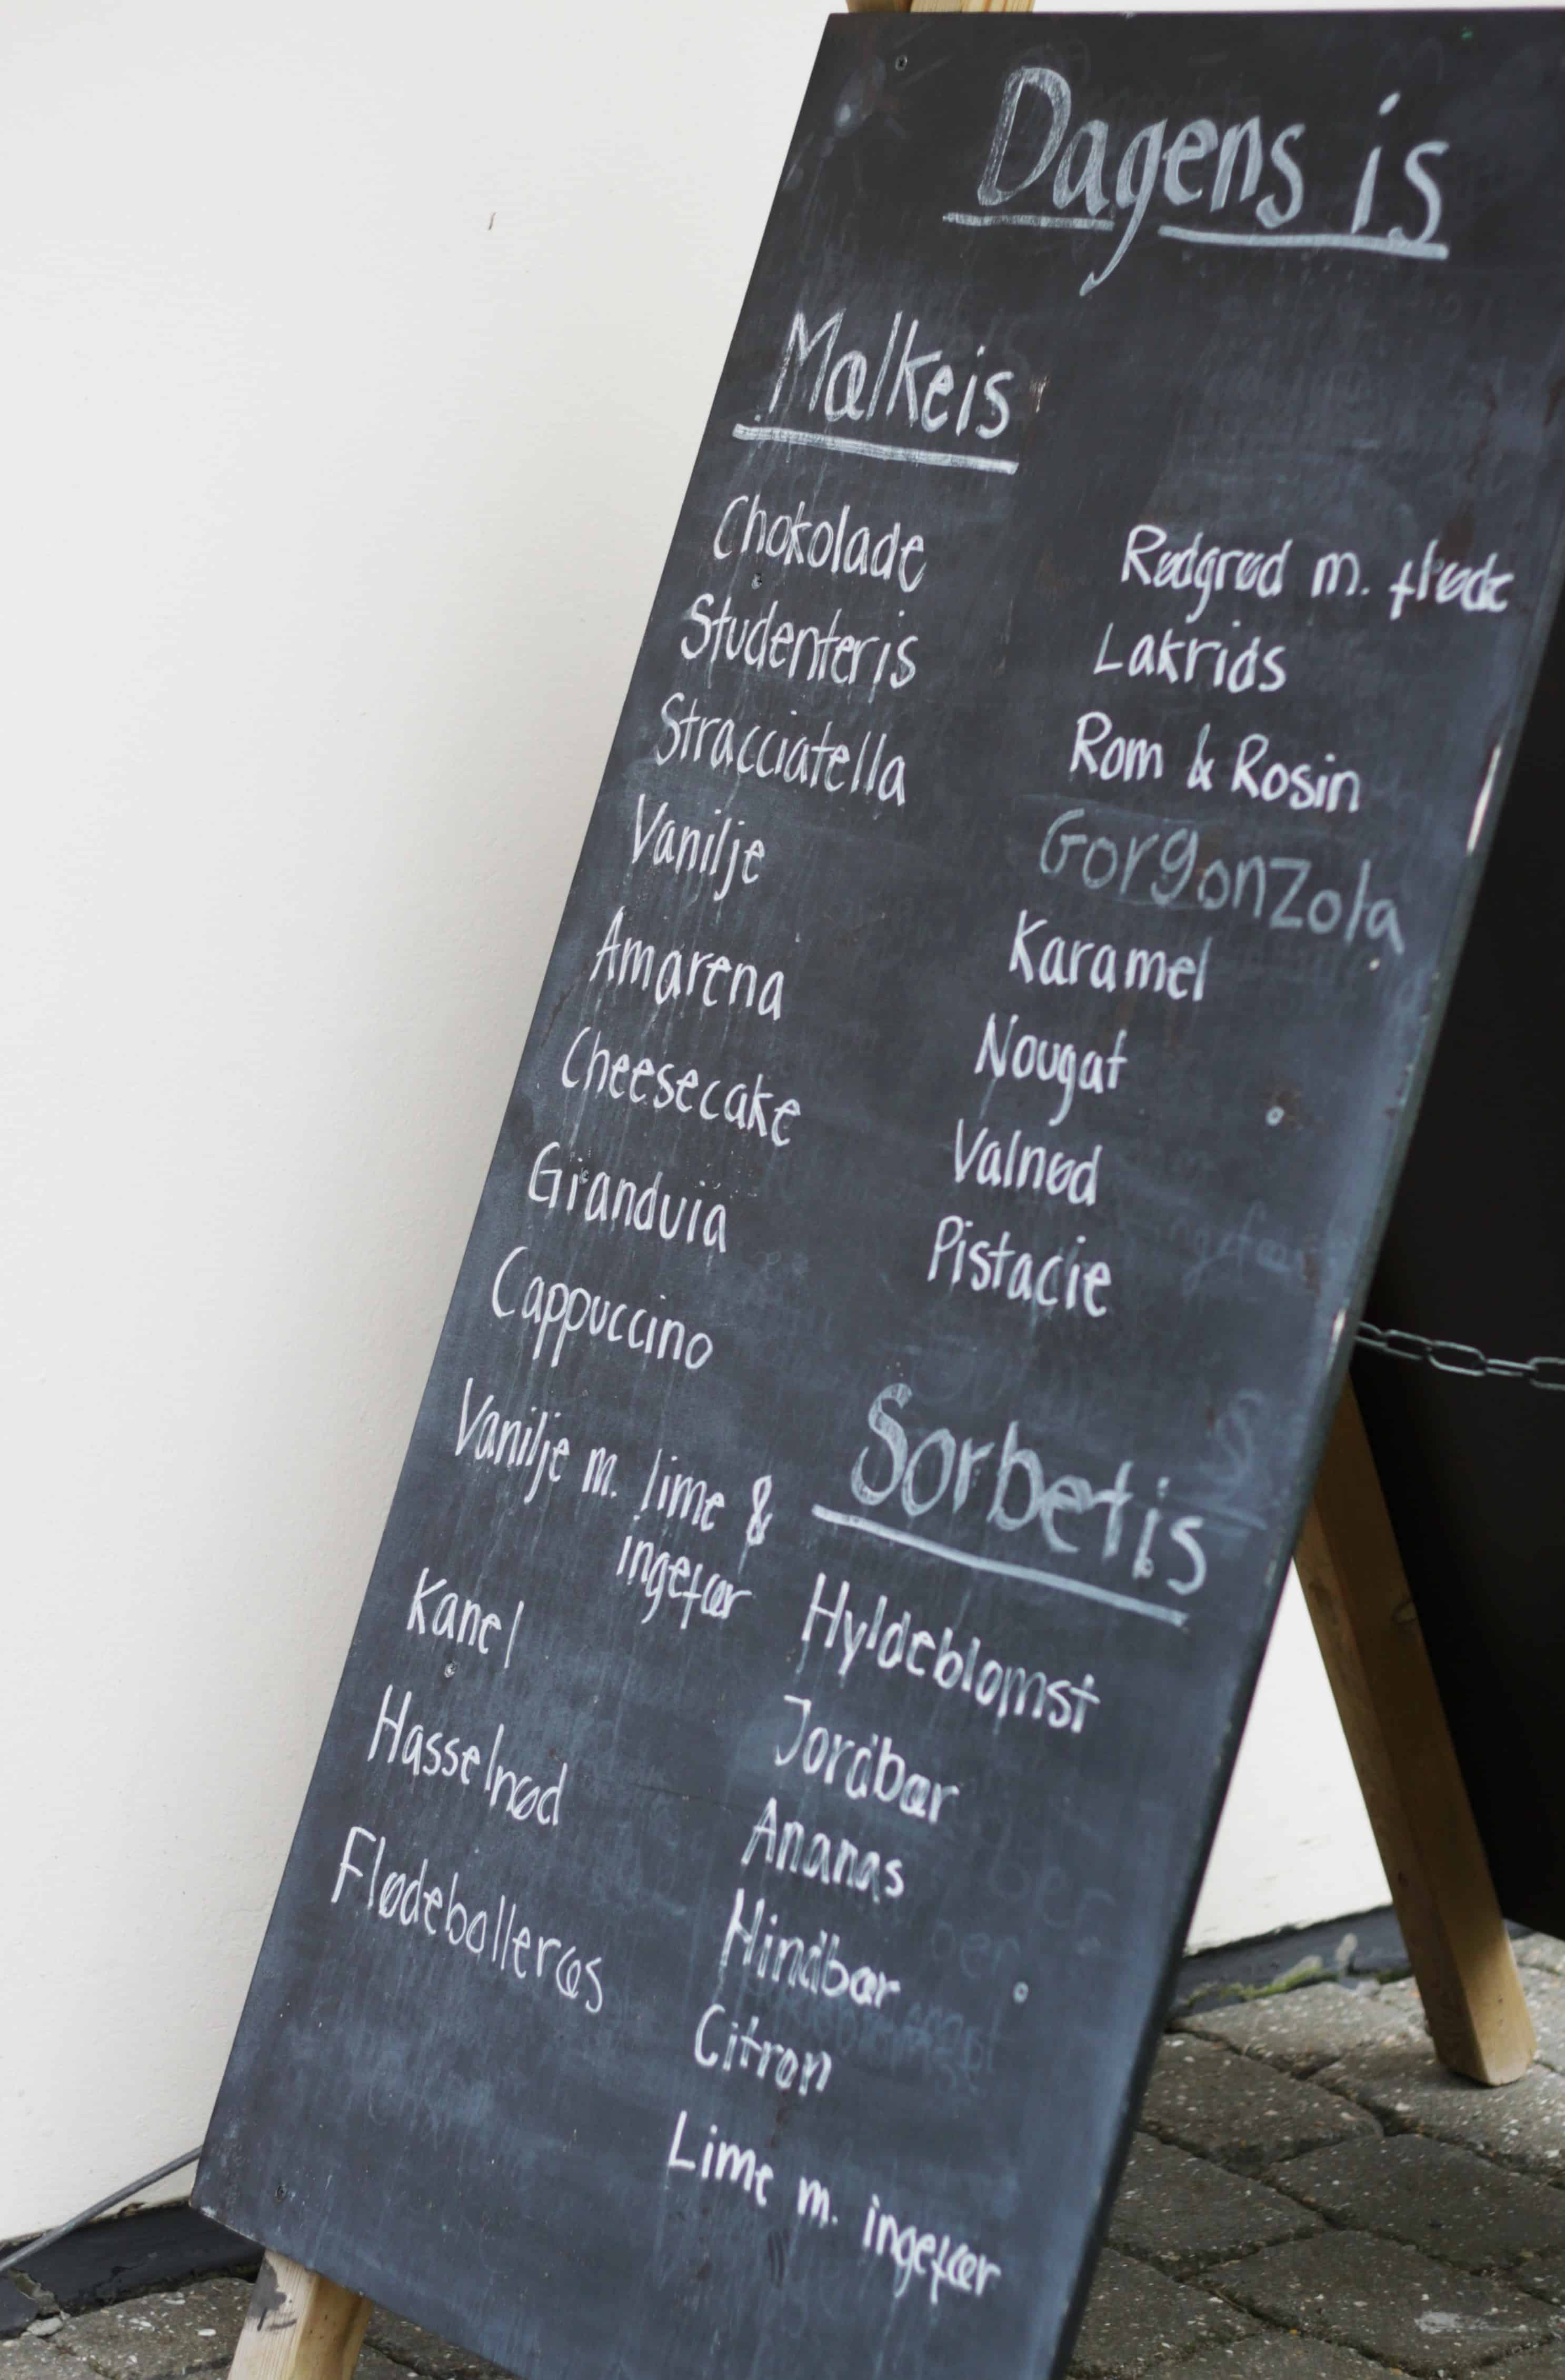 Dagens is
Mælkeis
Chokolade
Studenteris
Stracciatella
Vanilje
Amarena
Cheesecake
Gianduia
Cappuccino
Vanilje m. lime &
ingefær
Kanel
Hasselnød
Flødebolleræs
Rødgrød m. fløde
Lakrids
Rom & Rosin
Gorgonzola
Karamel
Nougat
Valnød
Pistacie
Sorbetis
Hyldeblomst
Jordbær
Ananas
Hindbær
Citron
Lime m. ingefær